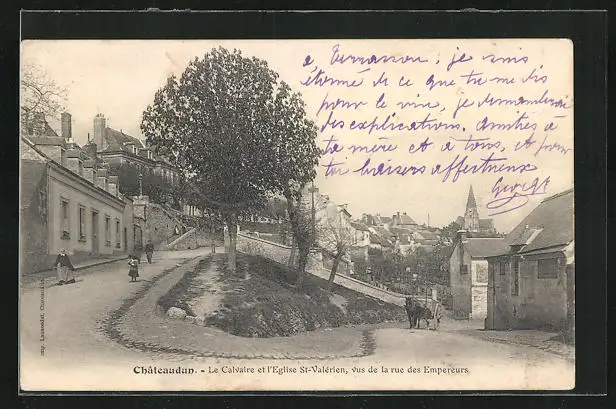 à Ternasson, je suis
étonné de ce que tu me dis
pour le vin, je demanderai
des explications, amitiés à
ta mère et à tous, et pour
toi baisers affectueux
Georges
Châteaudun. - Le Calvaire et l'Eglise St-Valérien, vus de la rue des Empereurs